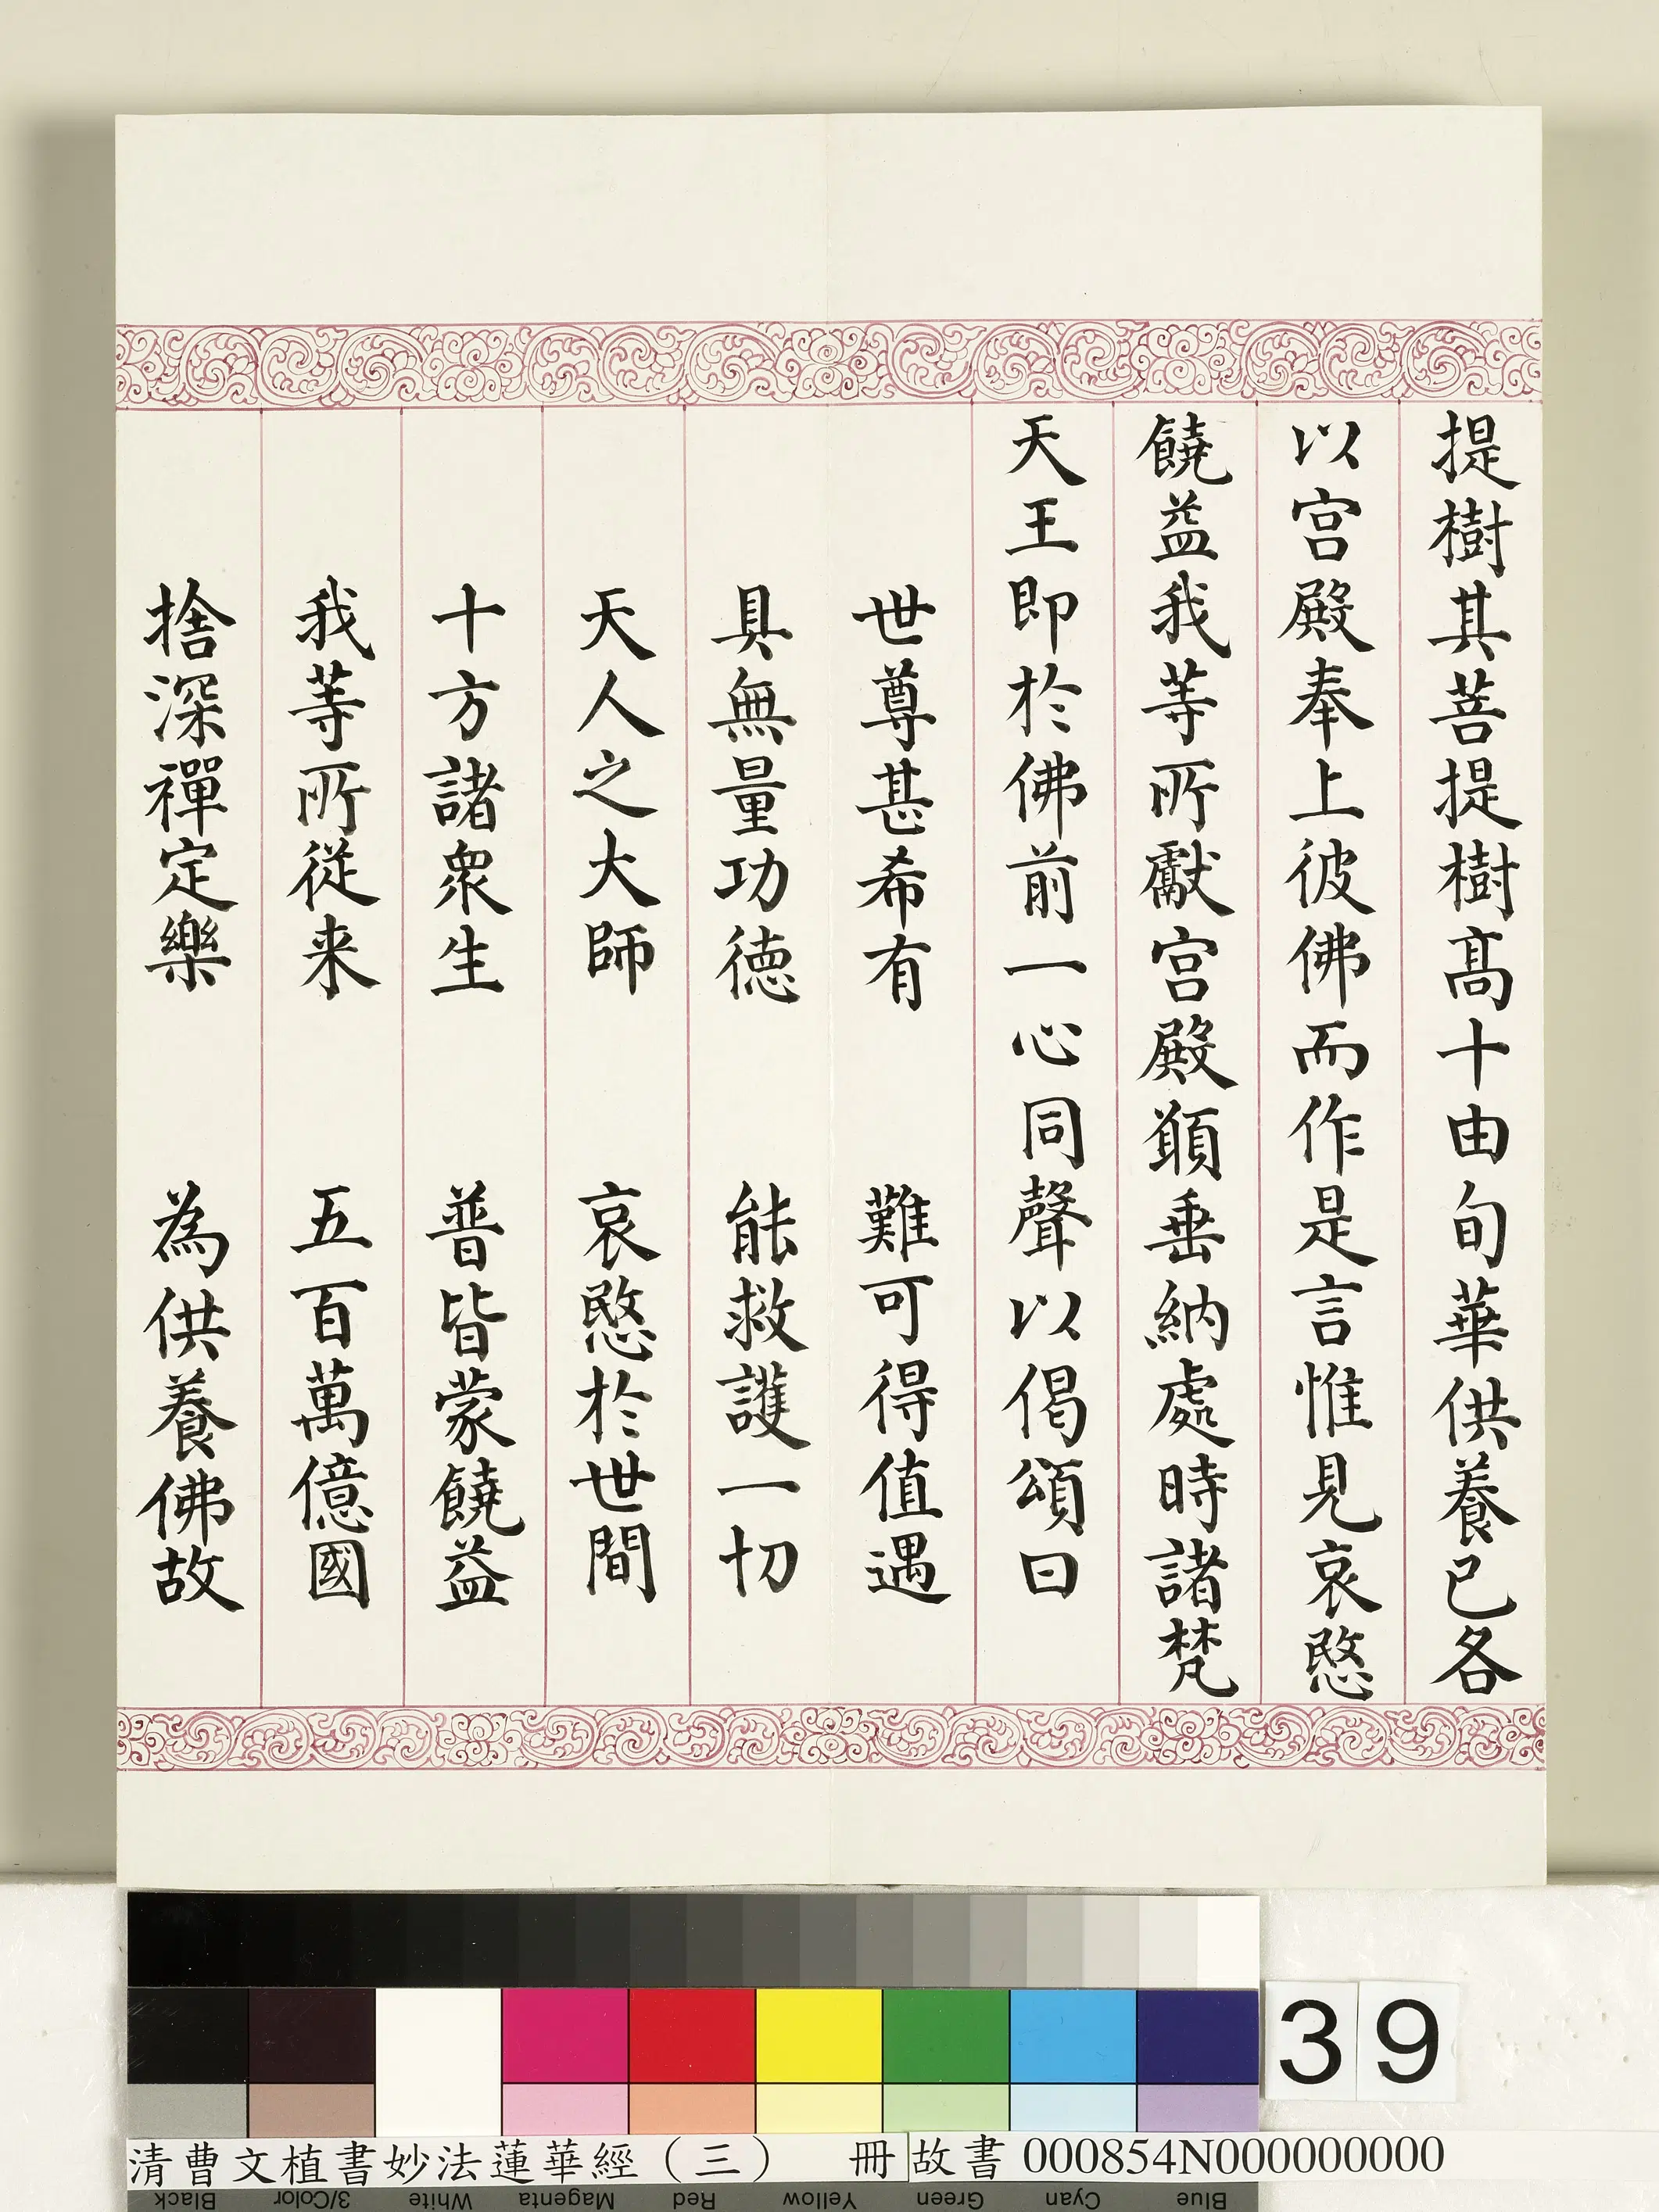 提樹其菩提樹髙十由旬華供養已各
以宫殿奉上彼佛而作是言惟見哀愍
饒益我等所獻宫殿顚垂納處時諸梵
天王即於佛前一心同聲以偈頌曰
世尊甚希有　難可得值遇
具無量功德　能救護一切
天人之大師　哀愍於世間
十方諸衆生　普皆蒙饒益
我等所從来　五百萬億國
捨深禪定樂　為供養佛故
39
清曹文植書妙法蓮華經（三）　冊　故書 000854N000000000
Black 3/Color White Magenta Red Yellow Green Cyan Blue